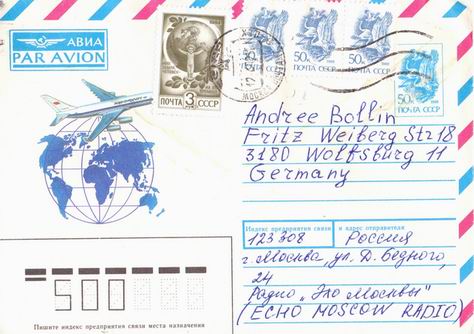 АВИА
PAR AVION
ПОЧТА 3 СССР
50к
50к
50к
ПОЧТА СССР
ПОЧТА СССР
ПОЧТА СССР
50к
ПОЧТА СССР
МОСКВА
Andree Bollin
Fritz Weiberg Str 18
3180 Wolfsburg 11
Germany
Индекс предприятия связи и адрес отправителя
123308 Россия
г. Москва, ул. Д. Бедного,
24
Радио „Эхо Москвы"
(ECHO MOSCOW RADIO)
500
Пишите индекс предприятия связи места назначения